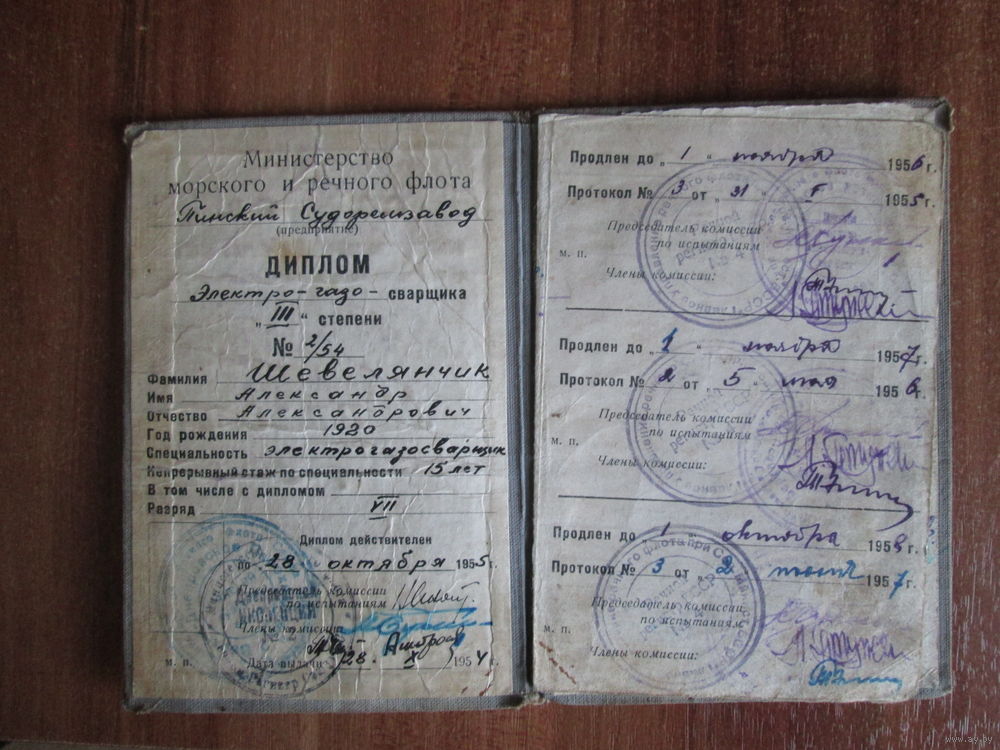 Министерство
морского и речного флота
Пинский Судоремзавод
(предприятие)
ДИПЛОМ
Электро-газо-сварщика
„III“ степени
№ 2/54
Фамилия Шевелянчик
Имя Александр
Отчество Александрович
Год рождения 1920
Специальность электрогазосварщик
Непрерывный стаж по специальности 15 лет
В том числе с дипломом
Разряд VII
Диплом действителен
по 28 октября 1955г.
Председатель комиссии
по испытаниям
Члены комиссии
м. п. Дата выдачи 28. X 1954г.
Продлен до „1“ ноября 1956г.
Протокол № 3 от „31“ 1955г.
Председатель комиссии
по испытаниям
м. п.
Члены комиссии:
Продлен до „1 ноября 1957г.
Протокол № 2 от „5“ мая 1956г.
Председатель комиссии
по испытаниям
м. п.
Члены комиссии:
Продлен до „1“ октября 1958г.
Протокол № 3 от „2 июня 1957г.
Председатель комиссии
по испытаниям
м. п.
Члены комиссии:
www.ay.by